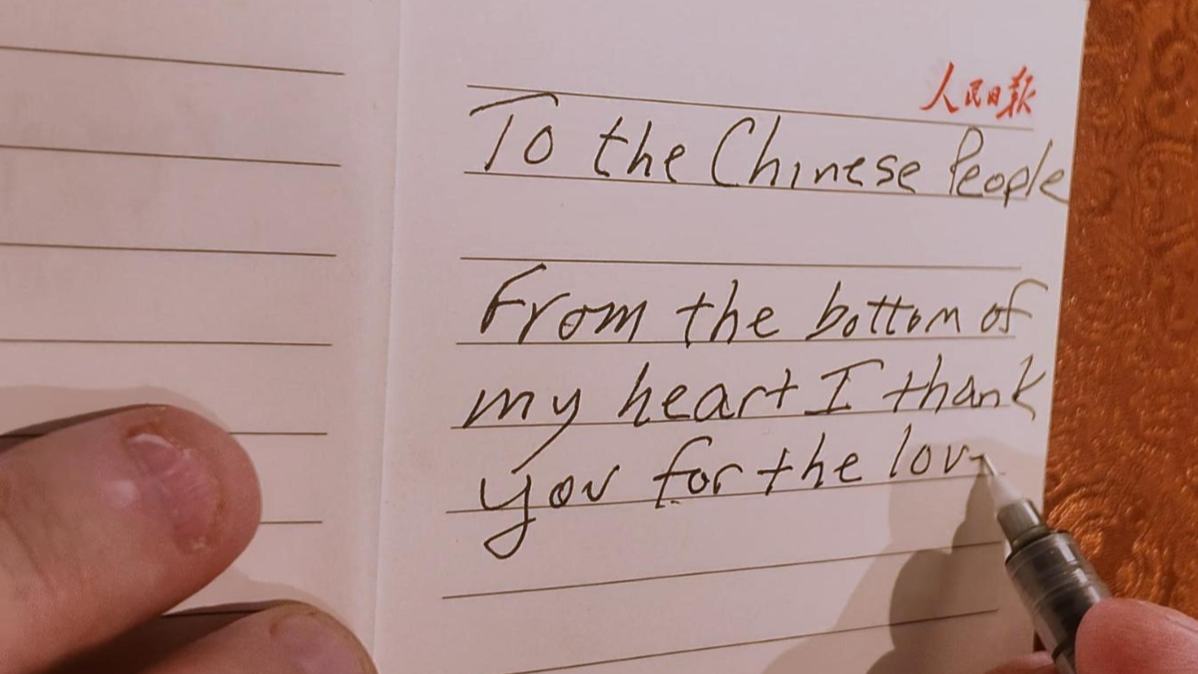 人民日报
To the Chinese People
From the bottom of
my heart I thank
you for the lov